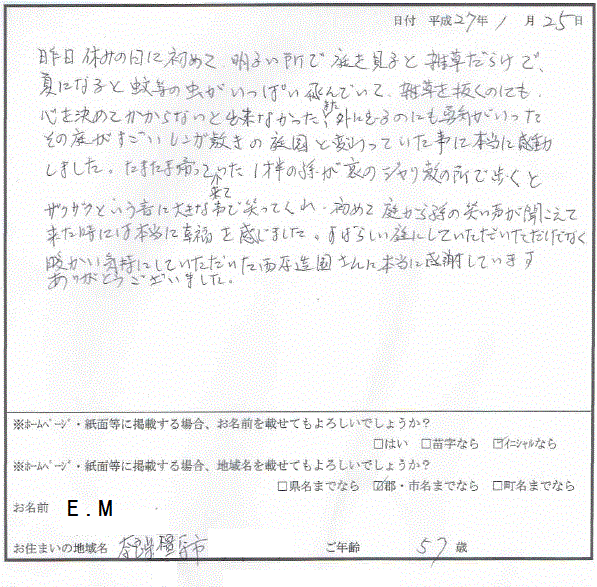 日付 平成27年1月25日
昨日休みの日に初めて明るい所で庭を見ると雑草だらけで、
夏になると蚊等の虫がいっぱい飛んでいて、雑草を抜くのにも、
心を決めてかからないと出来なかった。また、外に出るのにも勇気がいった
その庭がすごいレンガ敷きの庭園と変わっていた事に本当に感動
しました。たまたま帰っていた1才半の孫が裏のジャリ敷の所で歩くと
が来て
ザクザクという音に大きな声で笑ってくれ、初めて庭から孫の笑い声が聞こえて
来た時には本当に幸福を感じました。すばらしい庭にしていただいただけでなく
暖かい気持にしていただいた西存造園さんに本当に感謝しています
ありがとうございました。
※ホームページ・紙面等に掲載する場合、お名前を載せてもよろしいでしょうか?
□はい □苗字なら ☑イニシャルなら
※ホームページ・紙面等に掲載する場合、地域名を載せてもよろしいでしょうか?
□県名までなら ☑郡・市名までなら □町名までなら
お名前 E.M
お住まいの地域名 奈良県橿原市 ご年齢 57歳